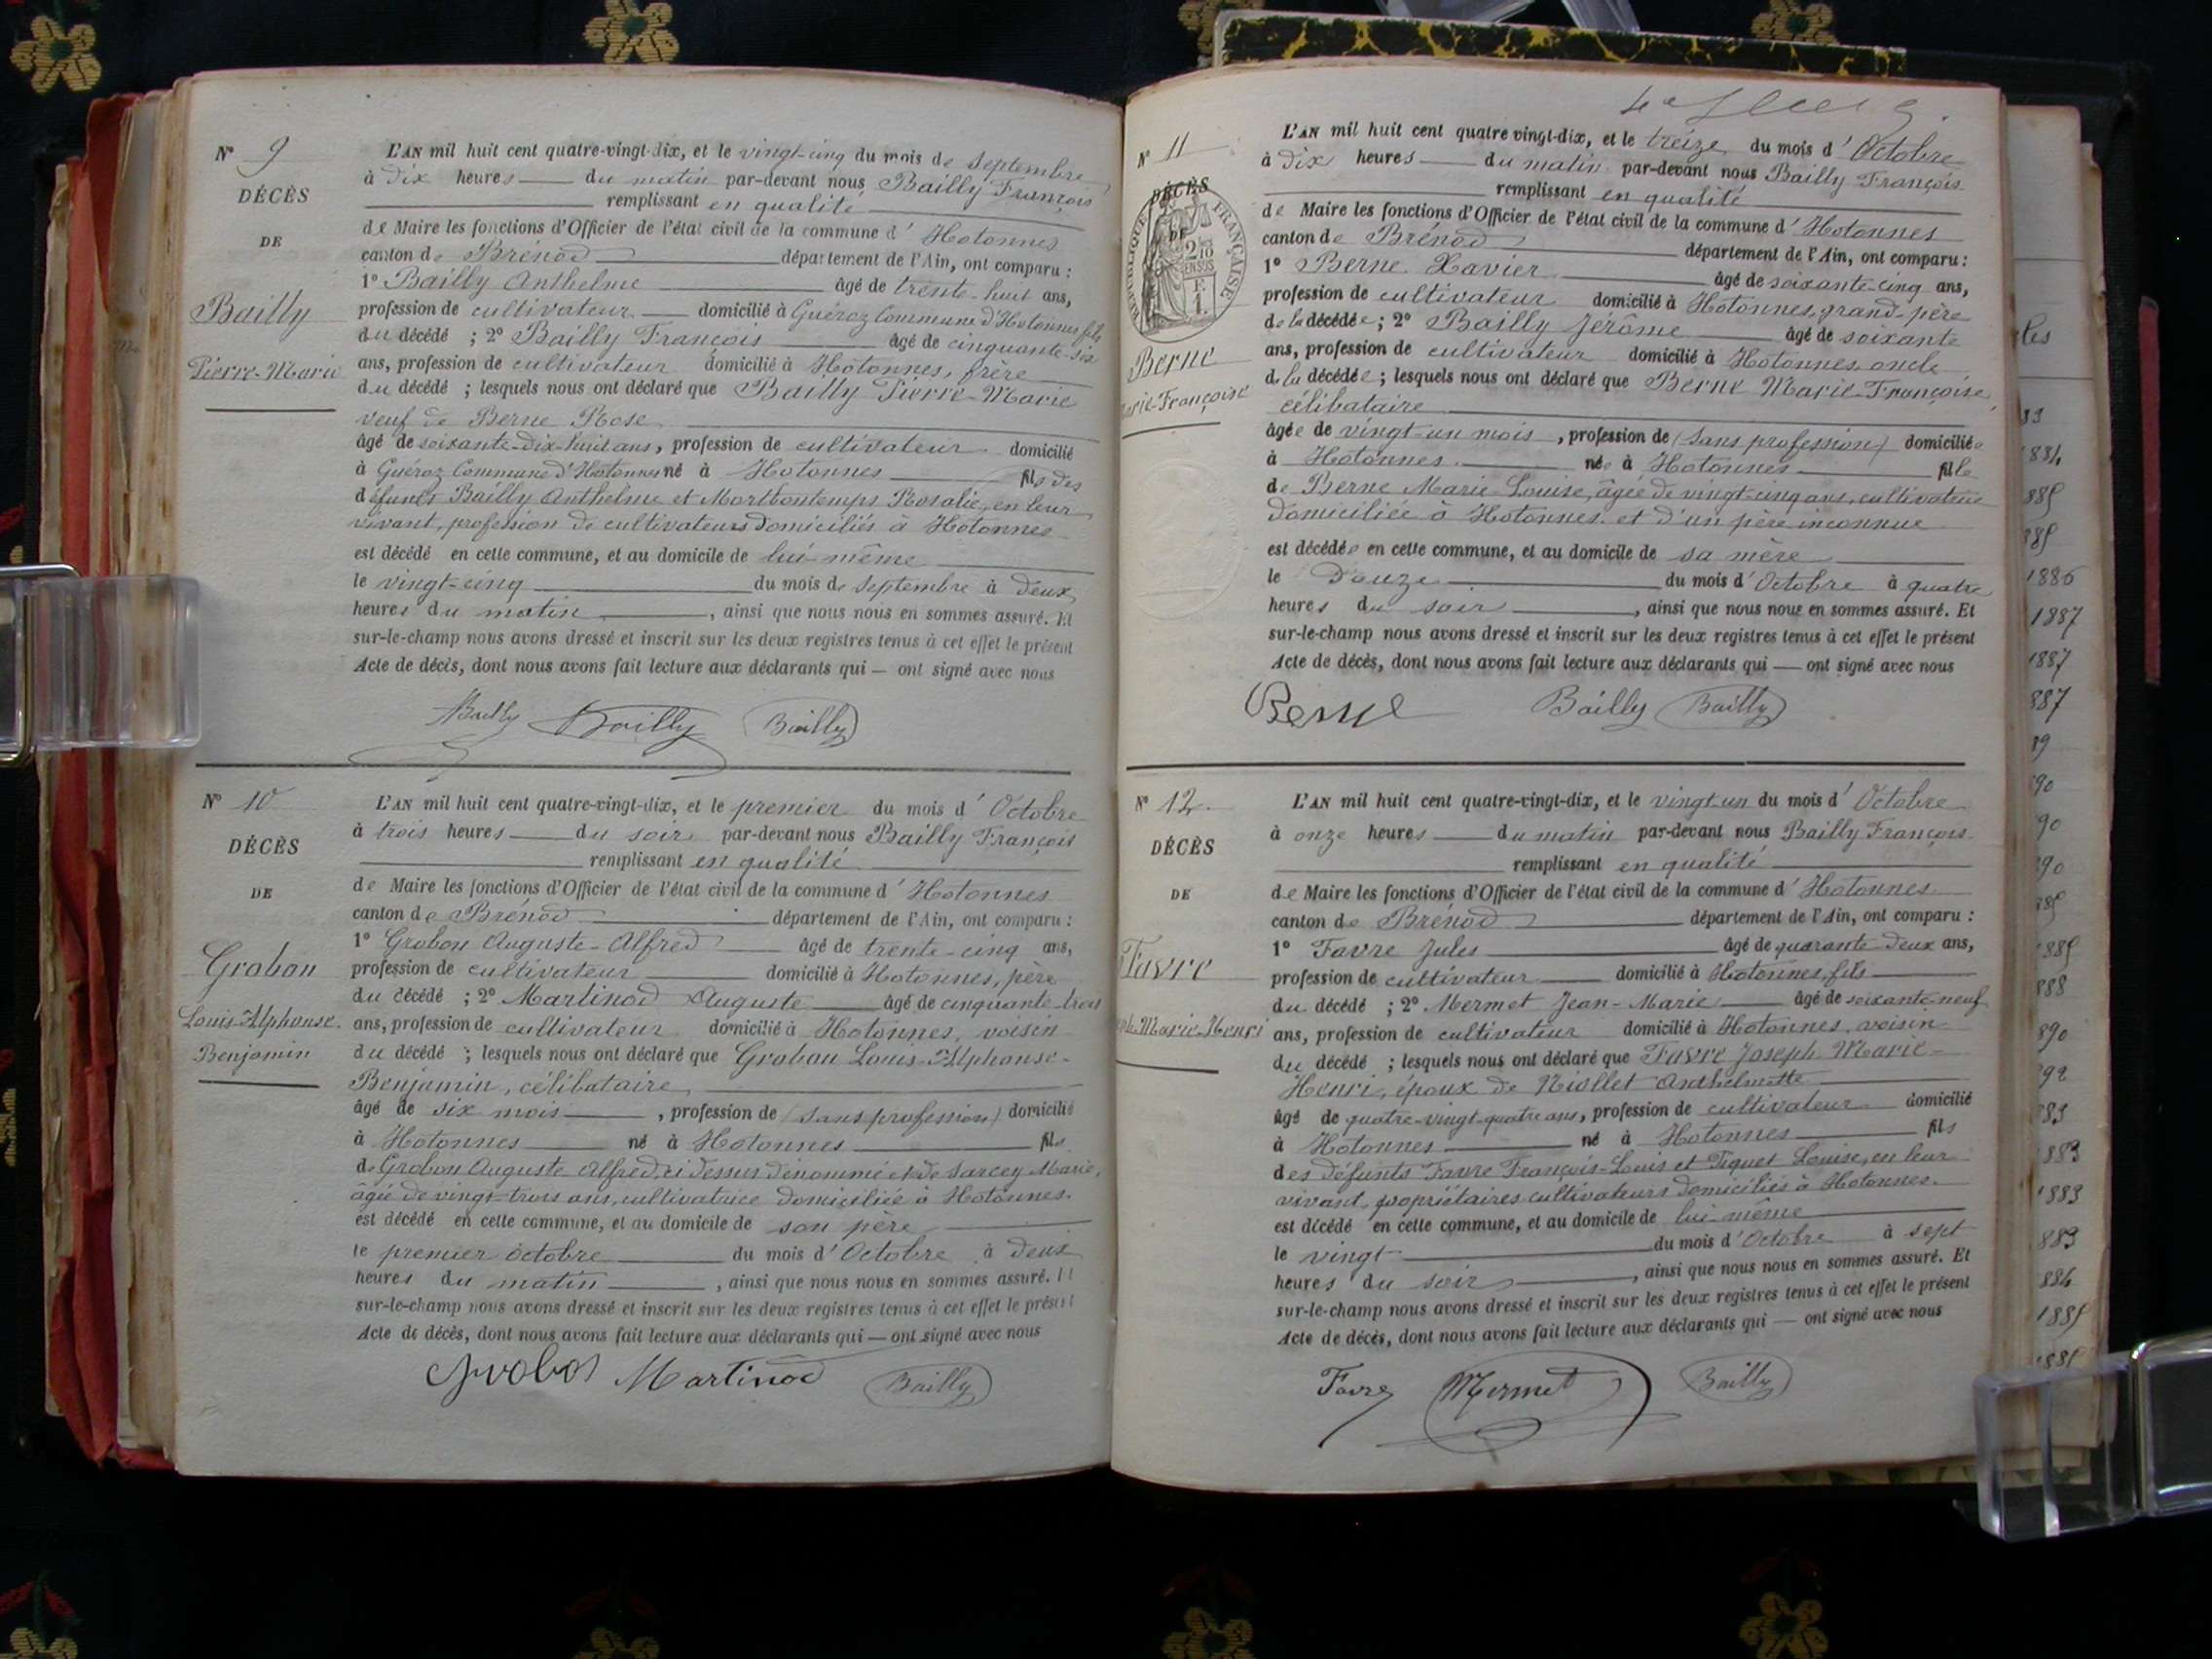 N° 9
DÉCÈS
DE
Bailly
Pierre-Marie
L'AN mil huit cent quatre-vingt-dix, et le vingt-cinq du mois de Septembre
à dix heures du matin par-devant nous Bailly François
remplissant en qualité
de Maire les fonctions d'Officier de l'état civil de la commune d'Hotonnes
canton de Brénod département de l'Ain, ont comparu :
1° Bailly Anthelme âgé de trente-huit ans,
profession de cultivateur domicilié à Guéroz Commune d'Hotonnes fils
du décédé ; 2° Bailly François âgé de cinquante-six
ans, profession de cultivateur domicilié à Hotonnes, frère
du décédé ; lesquels nous ont déclaré que Bailly Pierre-Marie
veuf de Berne Rose
âgé de soixante-dix-huit ans, profession de cultivateur domicilié
à Guéroz Commune d'Hotonnes né à Hotonnes fils des
défunts Bailly Anthelme et Montbontemps Rosalie, en leur
vivant, profession de cultivateurs domiciliés à Hotonnes
est décédé en cette commune, et au domicile de lui-même
le vingt-cinq du mois de Septembre à deux
heures du matin, ainsi que nous nous en sommes assuré. Et
sur-le-champ nous avons dressé et inscrit sur les deux registres tenus à cet effet le présent
Acte de décès, dont nous avons fait lecture aux déclarants qui — ont signé avec nous
Bailly Bailly Bailly
N° 10
DÉCÈS
DE
Grobon
Louis-Alphonse
Benjamin
L'AN mil huit cent quatre-vingt-dix, et le premier du mois d'Octobre
à trois heures du soir par-devant nous Bailly François
remplissant en qualité
de Maire les fonctions d'Officier de l'état civil de la commune d'Hotonnes
canton de Brénod département de l'Ain, ont comparu :
1° Grobon Auguste-Alfred âgé de trente-cinq ans,
profession de cultivateur domicilié à Hotonnes, père
du décédé ; 2° Martinod Auguste âgé de cinquante-trois
ans, profession de cultivateur domicilié à Hotonnes, voisin
du décédé ; lesquels nous ont déclaré que Grobon Louis-Alphonse-
Benjamin, célibataire
âgé de six mois, profession de (sans profession) domicilié
à Hotonnes né à Hotonnes fils
de Grobon Auguste-Alfred, ci dessus dénommé et de Sarcey Marie,
âgée de vingt-trois ans, cultivatrice domiciliée à Hotonnes.
est décédé en cette commune, et au domicile de son père
le premier octobre du mois d'Octobre à deux
heures du matin, ainsi que nous nous en sommes assuré. Et
sur-le-champ nous avons dressé et inscrit sur les deux registres tenus à cet effet le présent
Acte de décès, dont nous avons fait lecture aux déclarants qui — ont signé avec nous
Grobon Martinod Bailly
N° 11
DÉCÈS
DE
RÉPUBLIQUE FRANÇAISE
Berne
Marie-Françoise
L'AN mil huit cent quatre vingt-dix, et le treize du mois d'Octobre
à dix heures du matin par-devant nous Bailly François
remplissant en qualité
de Maire les fonctions d'Officier de l'état civil de la commune d'Hotonnes
canton de Brénod département de l'Ain, ont comparu :
1° Berne Xavier âgé de soixante-cinq ans,
profession de cultivateur domicilié à Hotonnes, grand-père
de la décédée ; 2° Bailly Jérôme âgé de soixante
ans, profession de cultivateur domicilié à Hotonnes oncle
de la décédée ; lesquels nous ont déclaré que Berne Marie-Françoise,
célibataire
âgée de vingt-un mois, profession de (sans profession) domiciliée
à Hotonnes née à Hotonnes fille
de Berne Marie-Louise, âgée de vingt-cinq ans, cultivatrice
domiciliée à Hotonnes et d'un père inconnue
est décédée en cette commune, et au domicile de sa mère
le Douze du mois d'Octobre à quatre
heures du soir, ainsi que nous nous en sommes assuré. Et
sur-le-champ nous avons dressé et inscrit sur les deux registres tenus à cet effet le présent
Acte de décès, dont nous avons fait lecture aux déclarants qui — ont signé avec nous
Berne Bailly Bailly
N° 12
DÉCÈS
DE
Favre
Marie-Henri
L'AN mil huit cent quatre-vingt-dix, et le vingt-un du mois d'Octobre
à onze heures du matin par-devant nous Bailly François
remplissant en qualité
de Maire les fonctions d'Officier de l'état civil de la commune d'Hotonnes
canton de Brénod département de l'Ain, ont comparu :
1° Favre Jules âgé de quarante-deux ans,
profession de cultivateur domicilié à Hotonnes, fils
du décédé ; 2° Mermet Jean-Marie âgé de soixante-neuf
ans, profession de cultivateur domicilié à Hotonnes, voisin
du décédé ; lesquels nous ont déclaré que Favre Joseph Marie-
Henri, époux de Niollet Anthelmette
âgé de quatre-vingt-quatre ans, profession de cultivateur domicilié
à Hotonnes né à Hotonnes fils
des défunts Favre François-Louis et Piquet Louise, en leur
vivant, propriétaires cultivateurs domiciliés à Hotonnes.
est décédé en cette commune, et au domicile de lui-même
le vingt du mois d'Octobre à sept
heures du soir, ainsi que nous nous en sommes assuré. Et
sur-le-champ nous avons dressé et inscrit sur les deux registres tenus à cet effet le présent
Acte de décès, dont nous avons fait lecture aux déclarants qui — ont signé avec nous
Favre Mermet Bailly
1886
1887
1887
887
90
90
90
888
890
1883
883
884